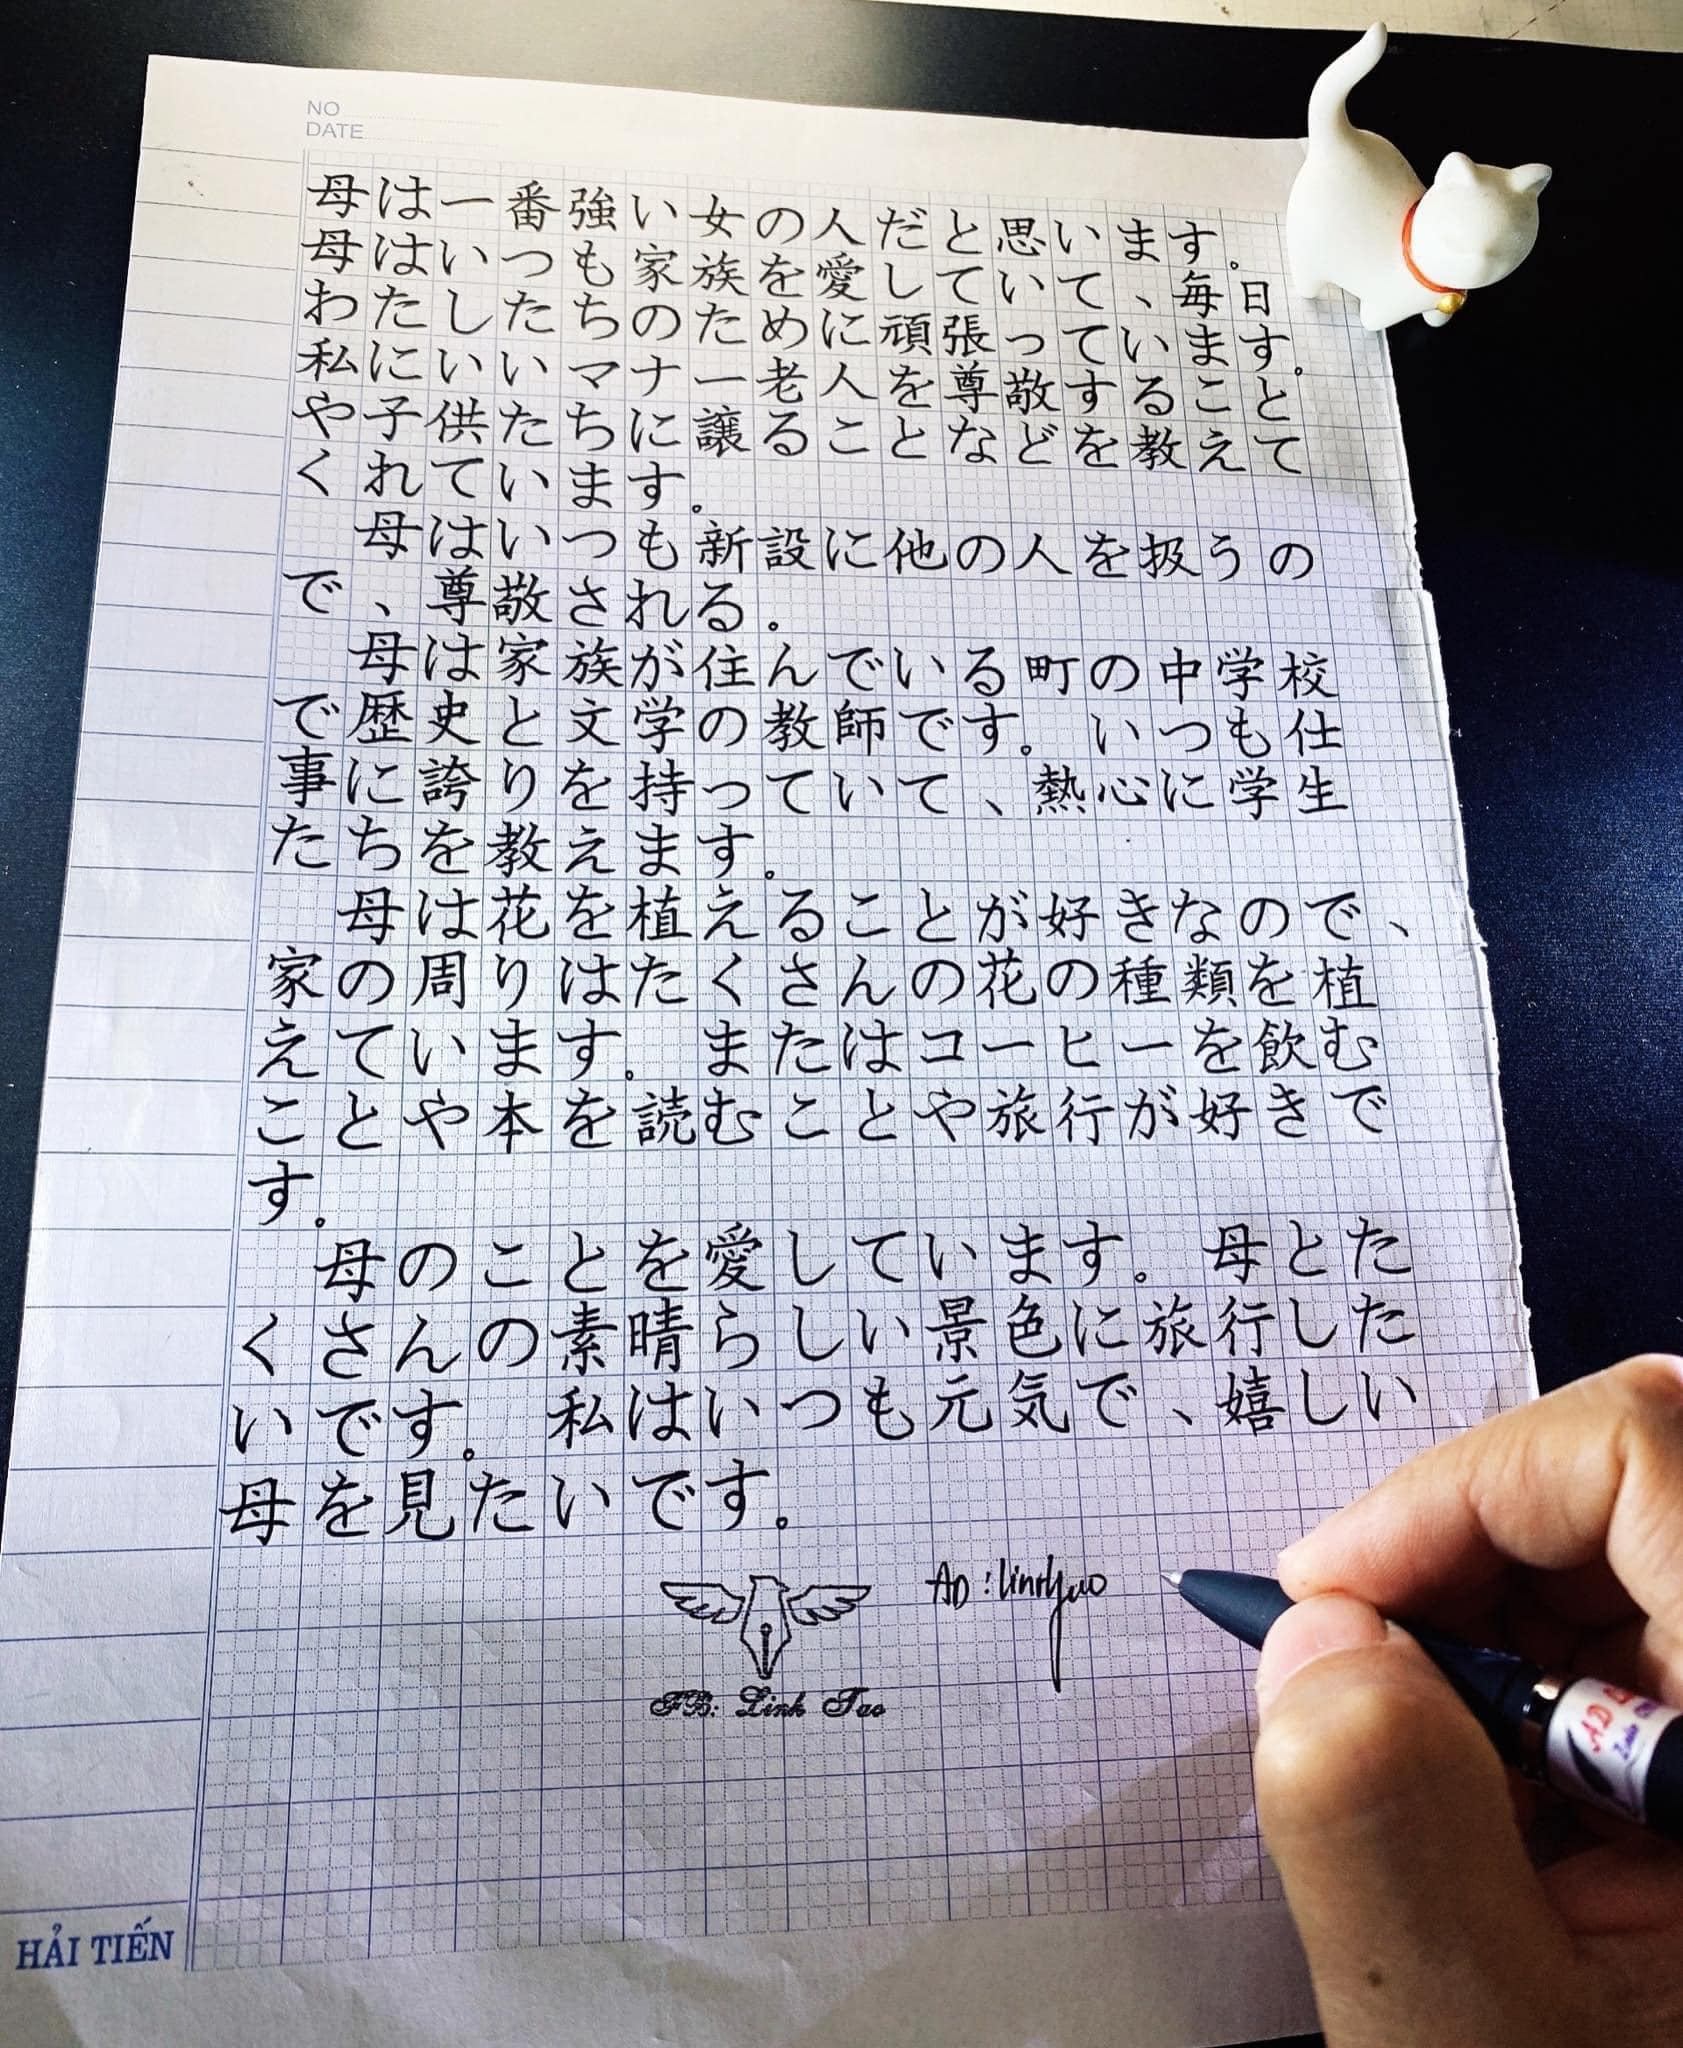 NO
DATE
母は一番強い女の人だと思います。
母はいつも家族を愛していて、毎日
わたしたちのために頑張っています。
私にいいマナー老人を尊敬すること
や子供たちに譲ることなどを教えて
くれています。
母はいつも新設に他の人を扱うの
で、尊敬される.
母は家族が住んでいる町の中学校
で歴史と文学の教師です。いつも仕
事に誇りを持っていて、熱心に学生
たちを教えます。
母は花を植えることが好きなので、
家の周りはたくさんの花の種類を植
えています。またはコーヒーを飲む
ことや本を読むことや旅行が好きで
す。
母のことを愛しています。母とた
くさんの素晴らしい景色に旅行した
いです。私はいつも元気で、嬉しい
母を見たいです。
AD:
FB: Linh Tao
AD
HẢI TIẾN